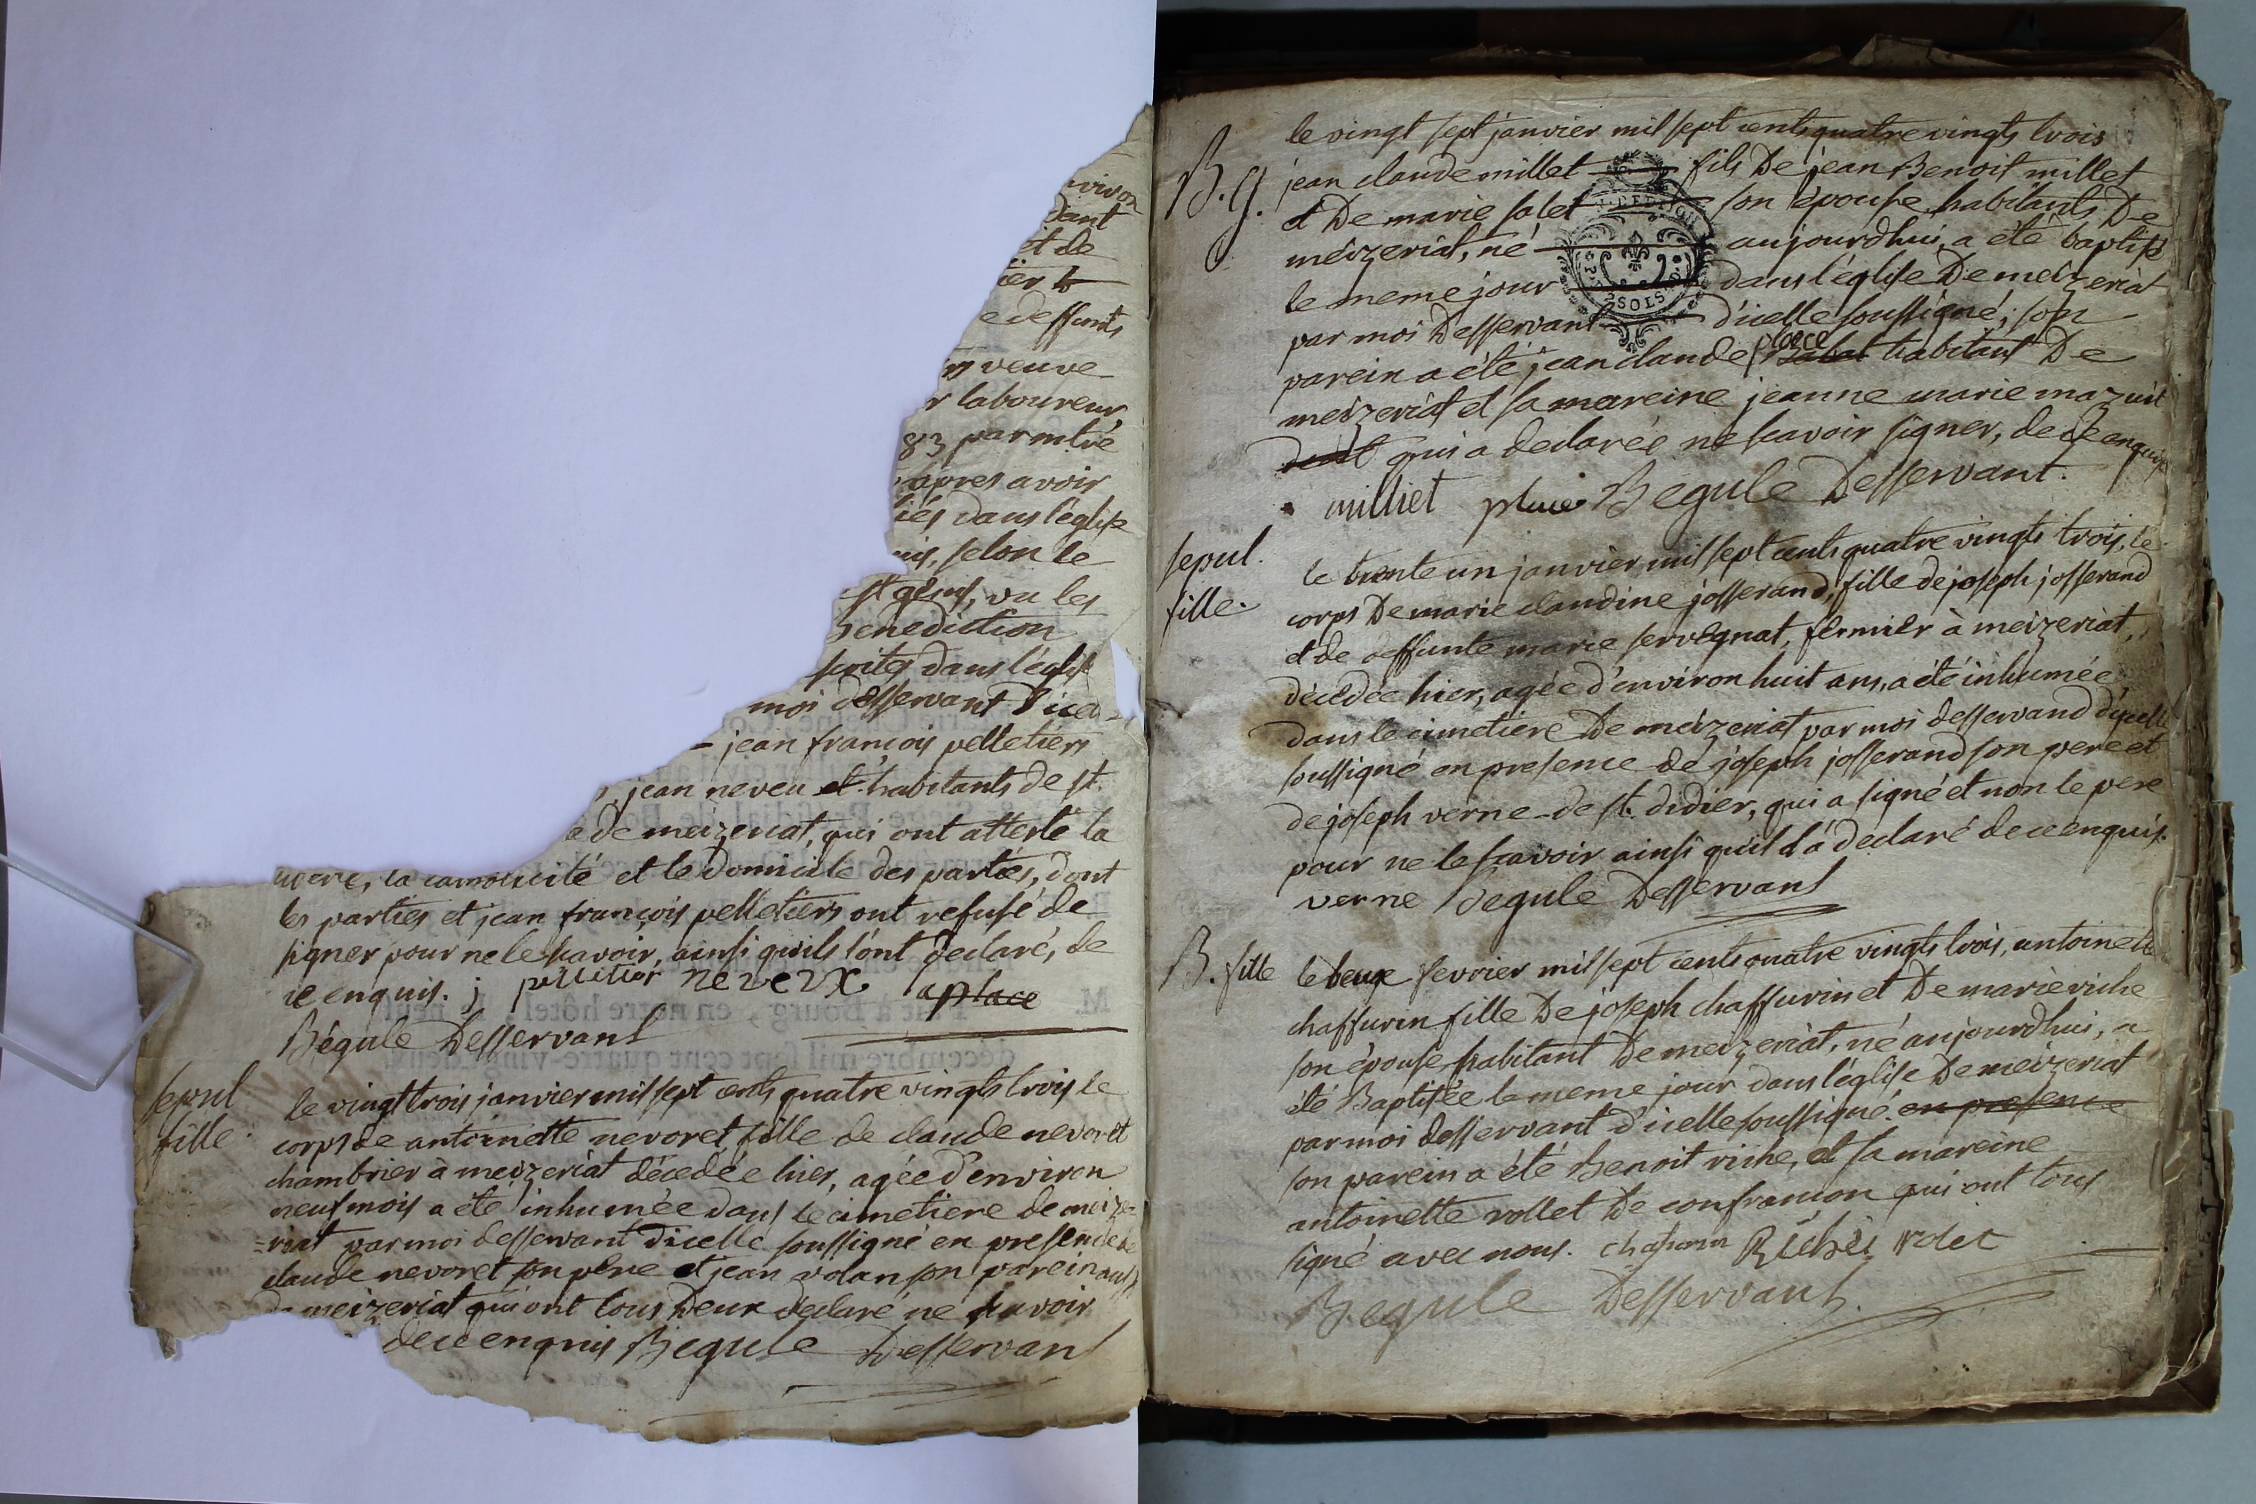 dant
et de
defunts
veuve
laboureur
83 par mtre
apres avoir
dans l'église
selon le
vu les
Benediction
dans l'église
moi desservant d'icel=
jean françois pelletiers
jean neveu et habitants de st.
de meizeriat, qui ont attesté la
et le domicile des parties, dont
les parties et jean françois pelletiers ont refusé de
signer pour ne le scavoir, ainsi quils l'ont declaré, de
ce enquis. j pelletier neveux aplace
Bégule Desservant
Sepul
fille.
le vingt trois janvier mil sept cents quatre vingts trois le
corps de antoinette nevoret fille de claude nevoret
chambrier à meizeriat décédée hier, agée d'environ
neuf mois a été inhumée dans le cimetiere de meize=
=riat par moi desservant d'icelle soussigné en presence de
claude nevoret son père et jean volan son parein aussi
de meizeriat qui ont tous Deux declaré ne scavoir
de ce enquis Begule Desservant
B. g.
le vingt sept janvier mil sept cents quatre vingts trois
jean claude millet fils De jean Benoit millet
et De marie salet son épouse habitants De
meizeriat, né aujourdhui, a été baptisé
le meme jour dans l'église De meizeriat
par moi Desservant d'icelle soussigné; son
parein a été jean claude place habitant De
meizeriat et sa mareine jeanne marie mazuit
qui a declarée ne scavoir signer, de ce enquise
milliet Begule Desservant.
sepul.
fille.
le trente un janvier mil sept cents quatre vingts trois, le
corps De marie claudine josserand, fille de joseph josserand
et de deffunte marie servegnat, fermier à meizeriat,
décédée hier, agée d'environ huit ans, a été inhumée
dans le cimetiere De meizeriat par moi desservand d'icelle
soussigné en presence de joseph josserand son pere et
de joseph verne de st. didier, qui a signé et non le pere
pour ne le scavoir ainsi quil l'a declaré de ce enquis.
verne Begule Desservant
B. fille
le deux fevrier mil sept cents quatre vingts trois, antoinette
chaffurin fille De joseph chaffurin et De marie riche
son épouse habitant De meizeriat, né aujourdhui, a
été Baptisée le meme jour dans l'église De meizeriat
par moi desservant d'icelle soussigné. en presence
son parein a été Benoit riche, et sa mareine
antoinette rollet De confrancon qui ont tous
signé avec nous. chafurin Riche rolet
Begule Desservant.